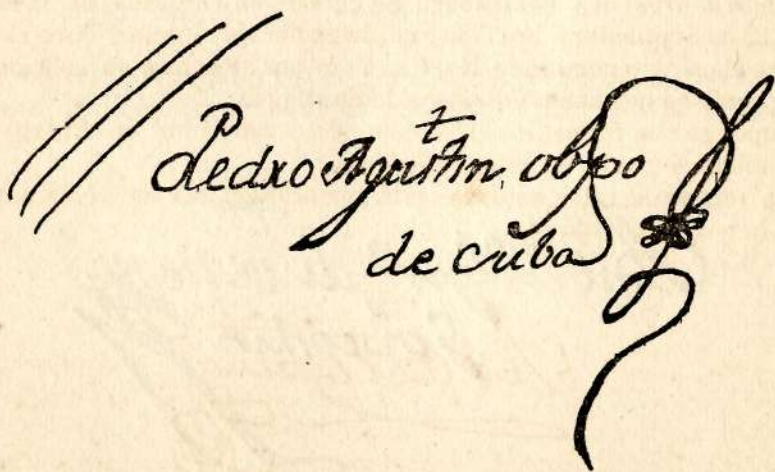 Pedro Agustin, obpo
de cuba